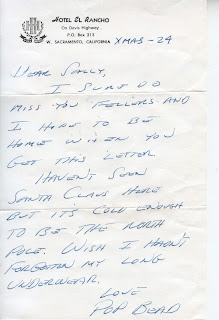 HOTEL EL RANCHO
On Davis Highway
P.O. Box 313
W. SACRAMENTO, CALIFORNIA
XMAS - 24
DEAR SALLY,
I SURE DO
MISS YOU FELLERS AND
I HOPE TO BE
HOME WHEN YOU
GET THIS LETTER.
HAVEN'T SEEN
SANTA CLAUS HERE
BUT ITS COLD ENOUGH
TO BE THE NORTH
POLE. WISH I HADN'T
FORGOTTEN MY LONG
UNDERWEAR.
LOVE
POP